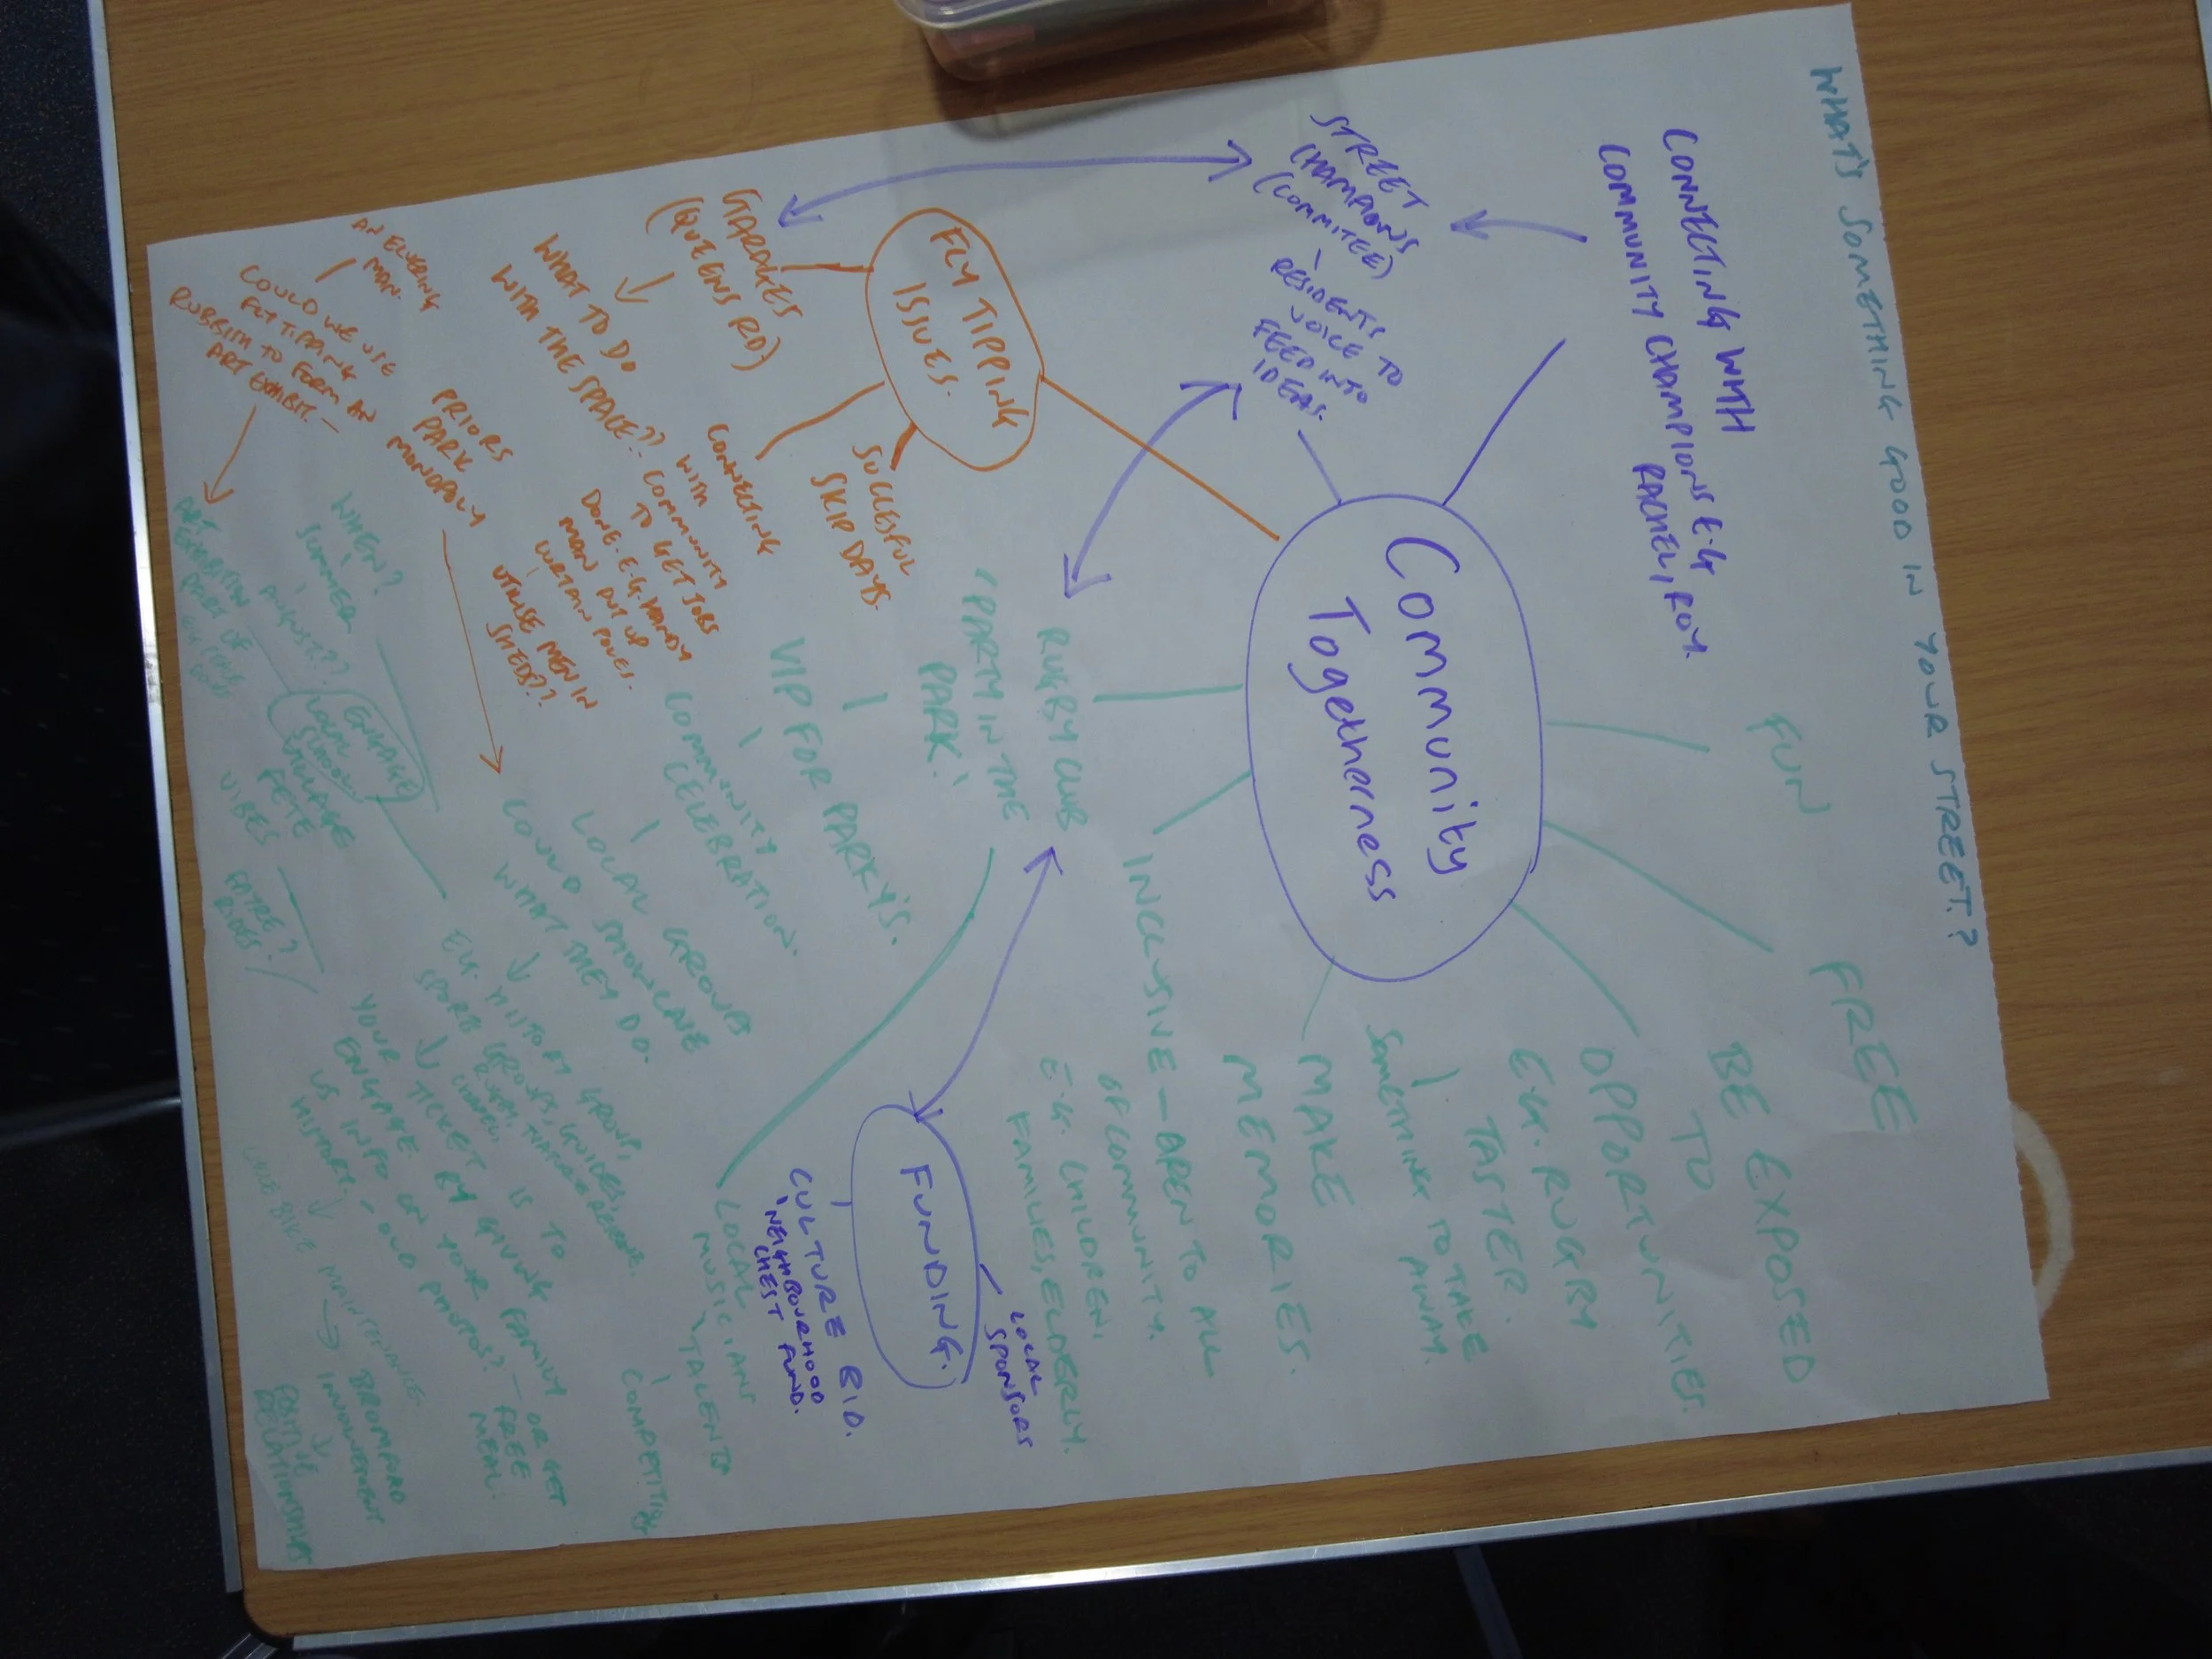 WHAT'S SOMETHING GOOD IN YOUR STREET?
CONNECTING WITH
COMMUNITY CHAMPIONS E.G
RACHEL, ROY.
STREET
CHAMPIONS
(COMMITEE)
RESIDENTS
VOICE TO
FEED INTO
IDEAS.
Community
Togetherness
FUN
FREE
BE EXPOSED
TO
OPPORTUNITIES.
E.G. RUGBY
TASTER.
SOMETHING TO TAKE
AWAY.
MAKE
MEMORIES.
INCLUSIVE - OPEN TO ALL
OF COMMUNITY.
E.G. CHILDREN,
FAMILIES, ELDERLY.
FLY TIPPING
ISSUES.
GARAGES
(QUEENS RD)
WHAT TO DO
WITH THE SPACE??
SUCCESFUL
SKIP DAYS.
CONNECTING
WITH
COMMUNITY
TO GET JOBS
DONE. E.G. HANDY
MAN PUT UP
CURTAIN POLES.
UTILISE MEN IN
SHEDS??
PRIORS
PARK
MONOPOLY
MAN.
COULD WE USE
FLY TIPPING
RUBBISH TO FORM AN
ART EXHIBIT.
ART
EXHIBITION
PART OF
RUGBY CLUB
'PARTY IN THE
PARK'
VIP FOR PARKY'S.
COMMUNITY
CELEBRATION.
LOCAL GROUPS
COULD SHOWCASE
WHAT THEY DO.
E.G. HISTORY GROUP,
SPORTS GROUPS, GUIDES,
RUGBY,
CHAPEL.
TICKET IS TO
ENGAGE BY GIVING FAMILY - OR GET
US INFO ON YOUR
YOUR
HISTORY. - OLD PHOTOS? - FREE
MEAL.
WHEN?
SUMMER
AUGUST??
ENGAGE
LOCAL
SCHOOL
VILLAGE
FETE
VIBES
FAYRE?
RIDES
LIKE BIKE MAINTENANCE.
BROMFORD
INVOLVEMENT
POSITIVE
RELATIONSHIPS
LOCAL
MUSICIANS
TALENTS
COMPETITION
FUNDING.
LOCAL
SPONSORS
CULTURE BID.
NEIGHBOURHOOD
CHEST FUND.